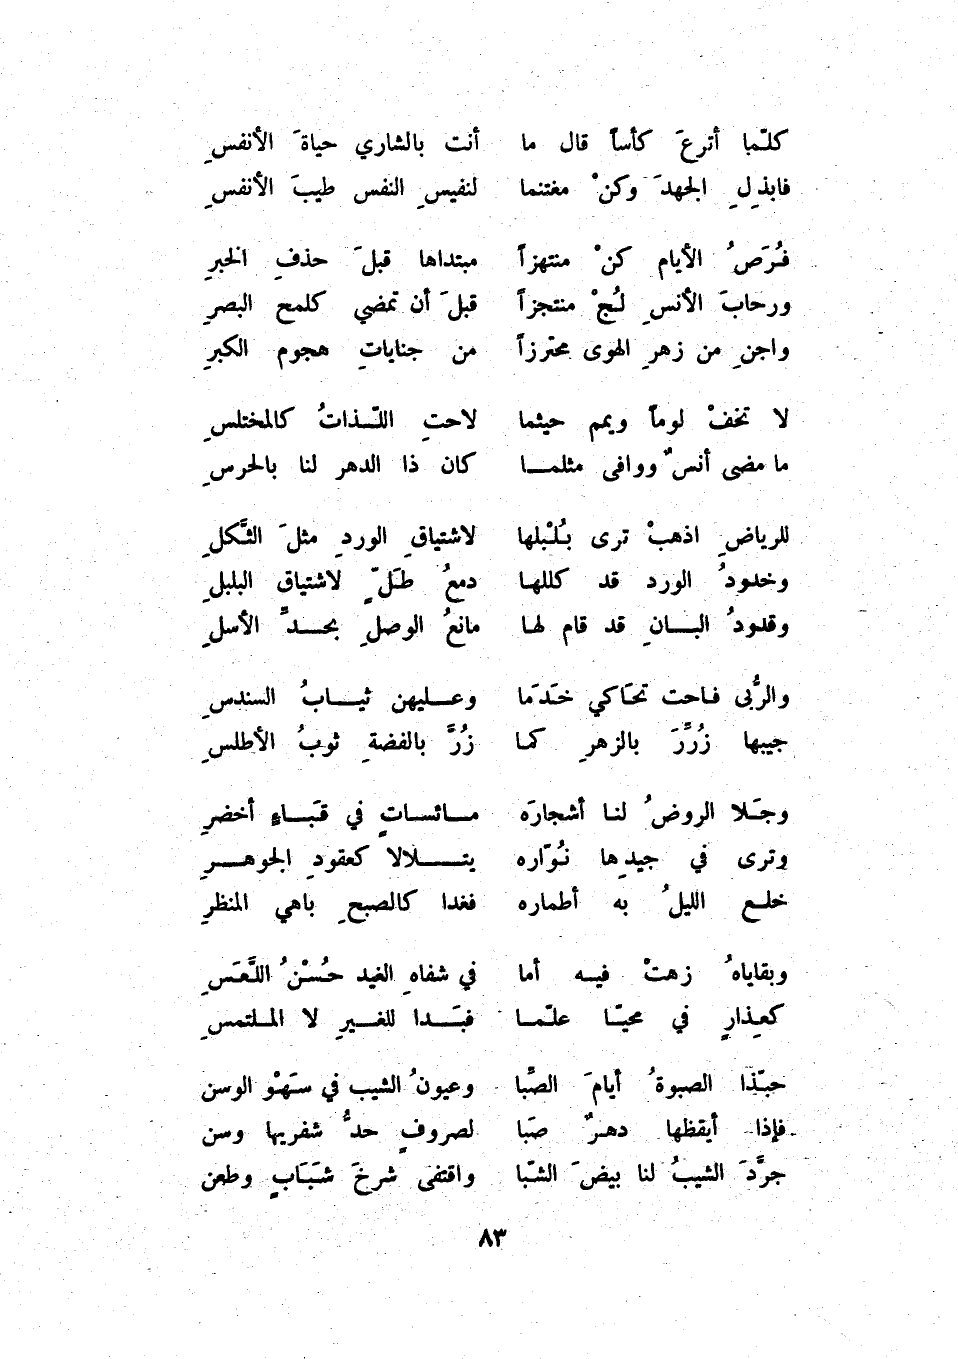 كلّما أترعَ كأساً قال ما أنت بالشاري حياةَ الأنفسِ
فابذِلِ الجهدَ وكنْ مغتنما لنفيسِ النفس طيبَ الأنفسِ
فُرَصُ الأيام كنْ منتهزاً مبتداها قبلَ حذفِ الخبرِ
ورحابَ الأنسِ لُجْ منتجزاً قبلَ أن تمضي كلمح البصرِ
واجنِ من زهرِ الهوى محترزاً من جناياتِ هجوم الكبرِ
لا تخفْ لوماً ويمم حيثما لاحتِ اللّذاتُ كالمختلسِ
ما مضى أنسٌ ووافى مثلما كان ذا الدهر لنا بالحرسِ
للرياضِ اذهبْ ترى بُلبْلها لاشتياقِ الوردِ مثلَ الثَّكلِ
وخدودُ الورد قد كللها دمعُ طَلٍّ لاشتياق البلبلِ
وقدودُ البانِ قد قام لها مانعُ الوصلِ بحدِّ الأسلِ
والرُّبى فاحت تحَاكي خَدَمَا وعليهن ثيابُ السندسِ
جيبها زُرِّرَ بالزهرِ كما زُرَّ بالفضةِ ثوبُ الأطلسِ
وجَلا الروضُ لنا أشجارَه مائساتٍ في قبَاءٍ أخضرِ
وترى في جيدِها نُوّاره يتلالا كعقودِ الجوهرِ
خلع الليلُ به أطماره فغدا كالصبحِ باهي المنظرِ
وبقاياهُ زهتْ فيه أما في شفاهِ الغيد حُسْنُ اللَّعَسِ
كعِذارٍ في محيّا علّما فبَدا للغيرِ لا الملتمسِ
حبّذا الصبوةُ أيامَ الصِّبا وعيونُ الشيب في سَهْو الوسن
فإذا أيقظها دهرٌ صَبا لصروفٍ حدُّ شفريها وسن
جرَّدَ الشيبُ لنا بيضَ الشّبا واقتفى شرخَ شَبَابٍ وطعن
٨٣